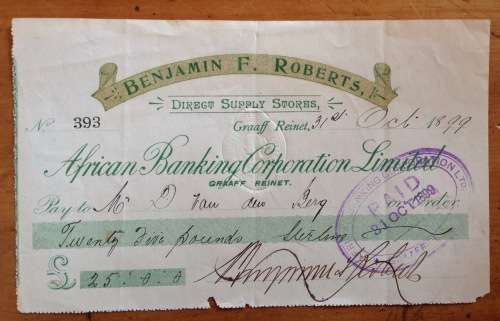 BENJAMIN F. ROBERTS,
DIRECT SUPPLY STORES,
No 393
Graaff Reinet, 31st Oct 1899
African Banking Corporation Limited
GRAAFF REINET.
Pay to Mr D Van der Berg or Order
Twenty five pounds Sterling
£25:0:0
PAID
31 OCT 1899